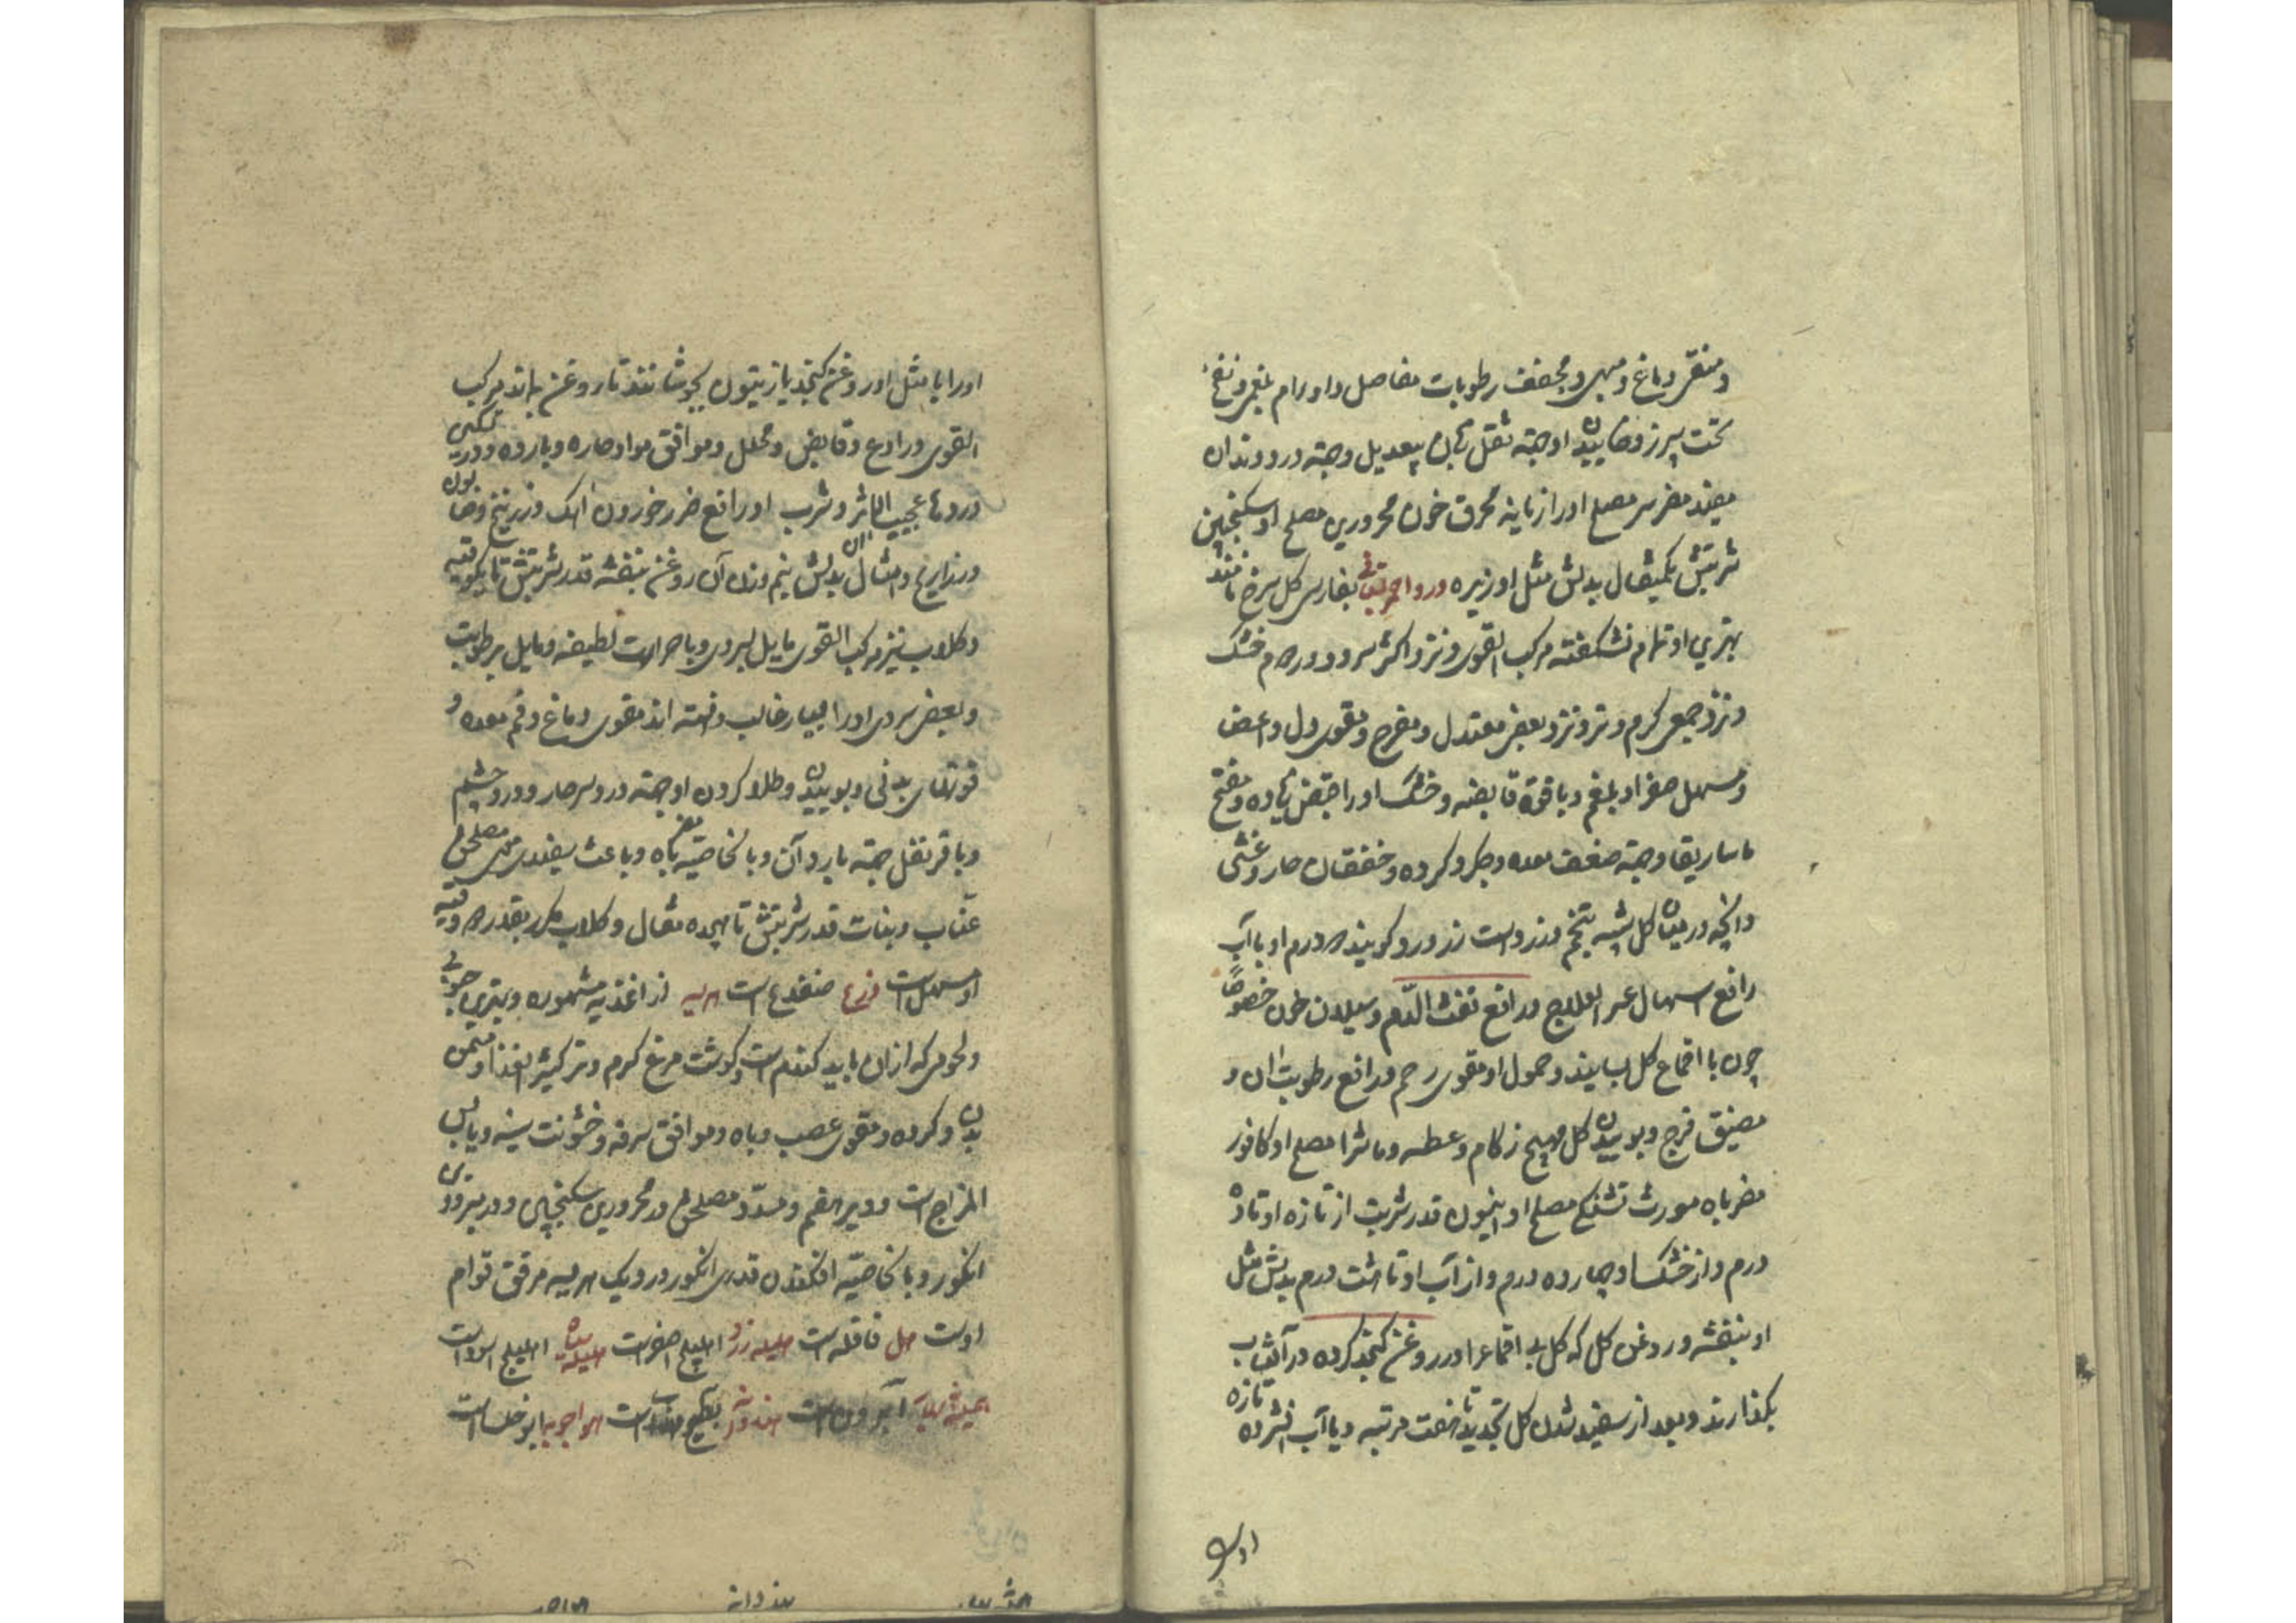 و منقی دماغ و مبهی و مجفف رطوبات مفاصل و اورام بلغمی و نفخ
تحت سپرز و خاییدن او جهته ثقل زبان بیعدیل و جهته درد دندان
مفید مضر سر مصلح او رازیانه محرق خون محرورین مصلح او سکنجبین
شربتش یکمثقال بدلش مثل او زیره ورد احمر بفارسی کل سرخ نامند
بهترین او تمام نشکفته مرکب القوی و نزد اکثر سرد و در دوم خشک
و نزد جمعی کرم و تر و نزد بعضی معتدل و مفرح و مقوی دل و اعضا
و مسهل صفرا و بلغم و با قوة قابضه و خشک او را قبض زیاده و مفتح
ماساریقا و جهته ضعف معده و جکر و کرده و خفقان حار و غشی
و انچه در میان کل شبیه بتخم و زرد است زر ورد کویند دو درم او با آب
رافع اسهال عسر العلاج و رافع نفث الدّم و سیلان خون خصوصاً
چون با اقماع کل بسایند و حمول او مقوی رحم و رافع رطوبت ان و
مضیق فرج و بوییدن کل مهیج زکام و عطسه و ماشرا مصلح او کافور
مضر باه مورث تشنکی مصلح او انیسون قدر شربت از تازه او تا ده
درم و از خشک او چهار ده درم و از آب او تا هشت درم بدلش مثل
او بنفشه و روغن کل که کل بی اقماع را در روغن کنجد کرده در آفتاب
بکذارند و بعد از سفید شدن کل تجدید تا هفت مرتبه و با آب افشرده تازه
او را
او را با مثل او روغن کنجد یا زیتون بجوشانند تا روغن بماند مرکب
القوی و رادع و قابض و محلل و موافق مواد حاره و بارده و در تسکین
دردها عجیب الاثر و شرب او رافع ضرر خوردن اهک و زرنیخ و صابون
و ذراریح و امثال ان بدلش نیم وزن آن روغن بنفشه قدر شربتش تا یکوقیه
و کلاب نیز مرکب القوی مایل بسردی و با حرارت لطیفه و مایل برطوبت
و بعضی سردی او را بسیار غالب دانسته اند مقوی دماغ و فم معده و
قوتهای بدنی و بوییدن و طلا کردن او جهته درد سر حار و درد چشم
و با قرنفل جهته بارد آن و بالخاصیه مضر باه و باعث سفیدی موی مصلحش
عنّاب و نبات قدر شربتش تا هیجده مثقال و کلاب مکرر بقدر دو وقیه
او مسهل است وزغ ضفدع است هریسه از اغذیه مشهوره و بهترین حبوبی
و لحومی که ازان باید کندم است و کوشت مرغ کرم و تر کثیر الغذا و مسمن
بدن و کرده و مقوی عصب و باه و موافق سرفه و خشونت سینه و یابس
المزاج است و دیر هضم و مسدّد مصلحش در محرورین سکنجبین و در مبرودین
انکور و بالخاصیّه افکندن قدری انکور در دیک هریسه مرقق قوام
اوست هل قاقله است هلیله زرد اهلیلج اصفر است هلیله سیاه اهلیلج اسود است
همیشه بهار آذریون است هندوانه بطیخ هندی است هواجویه ابو خلسا است